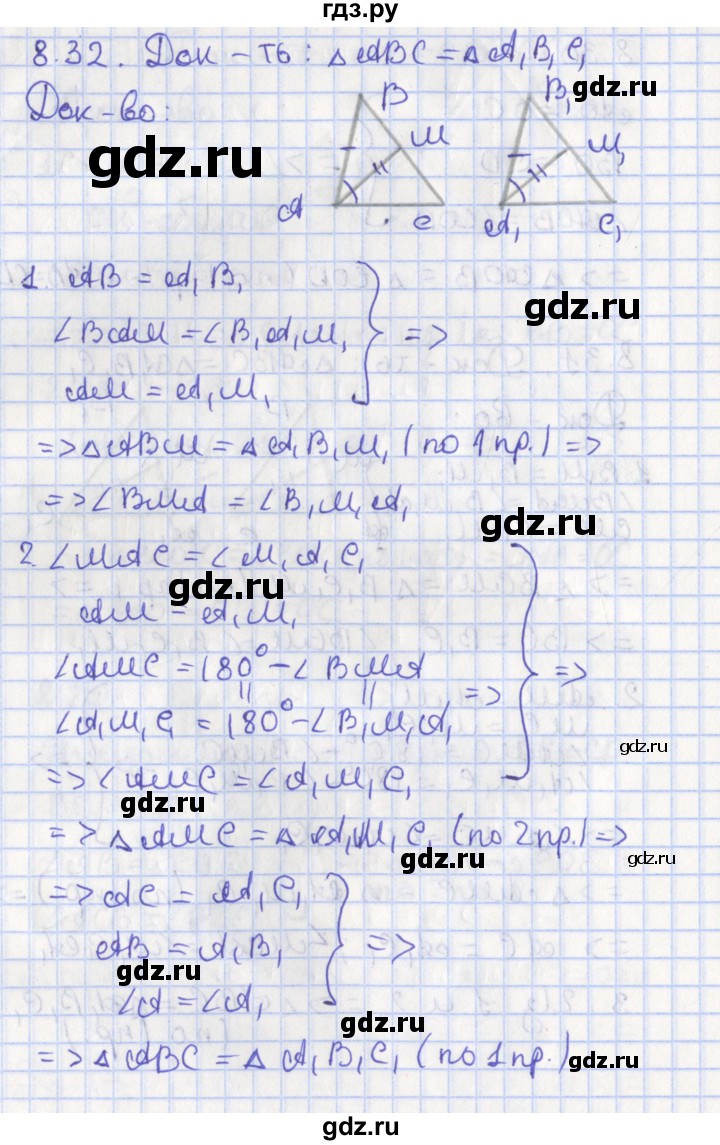 гдз.ру
8.32. Док-ть: △ABC = △A₁B₁C₁
Док-во:
B
M
A
C
B₁
M₁
A₁
C₁
gdz.ru
gdz.ru
1. AB = A₁B₁
∠BAM = ∠B₁A₁M₁ } =>
AM = A₁M₁
gdz.ru
=> △ABM = △A₁B₁M₁ (по 1 пр.) =>
=> ∠BMA = ∠B₁M₁A₁
gdz.ru
2. ∠MAC = ∠M₁A₁C₁
gdz.ru
AM = A₁M₁
∠AMC = 180° - ∠BMA
|| || => } =>
∠A₁M₁C₁ = 180° - ∠B₁M₁A₁
gdz.ru
=> ∠AMC = ∠A₁M₁C₁
gdz.ru
=> △AMC = △A₁M₁C₁ (по 2 пр.) =>
gdz.ru
gdz.ru
=> AC = A₁C₁
AB = A₁B₁ } =>
gdz.ru
∠A = ∠A₁
gdz.ru
=> △ABC = △A₁B₁C₁ (по 1 пр.)
gdz.ru